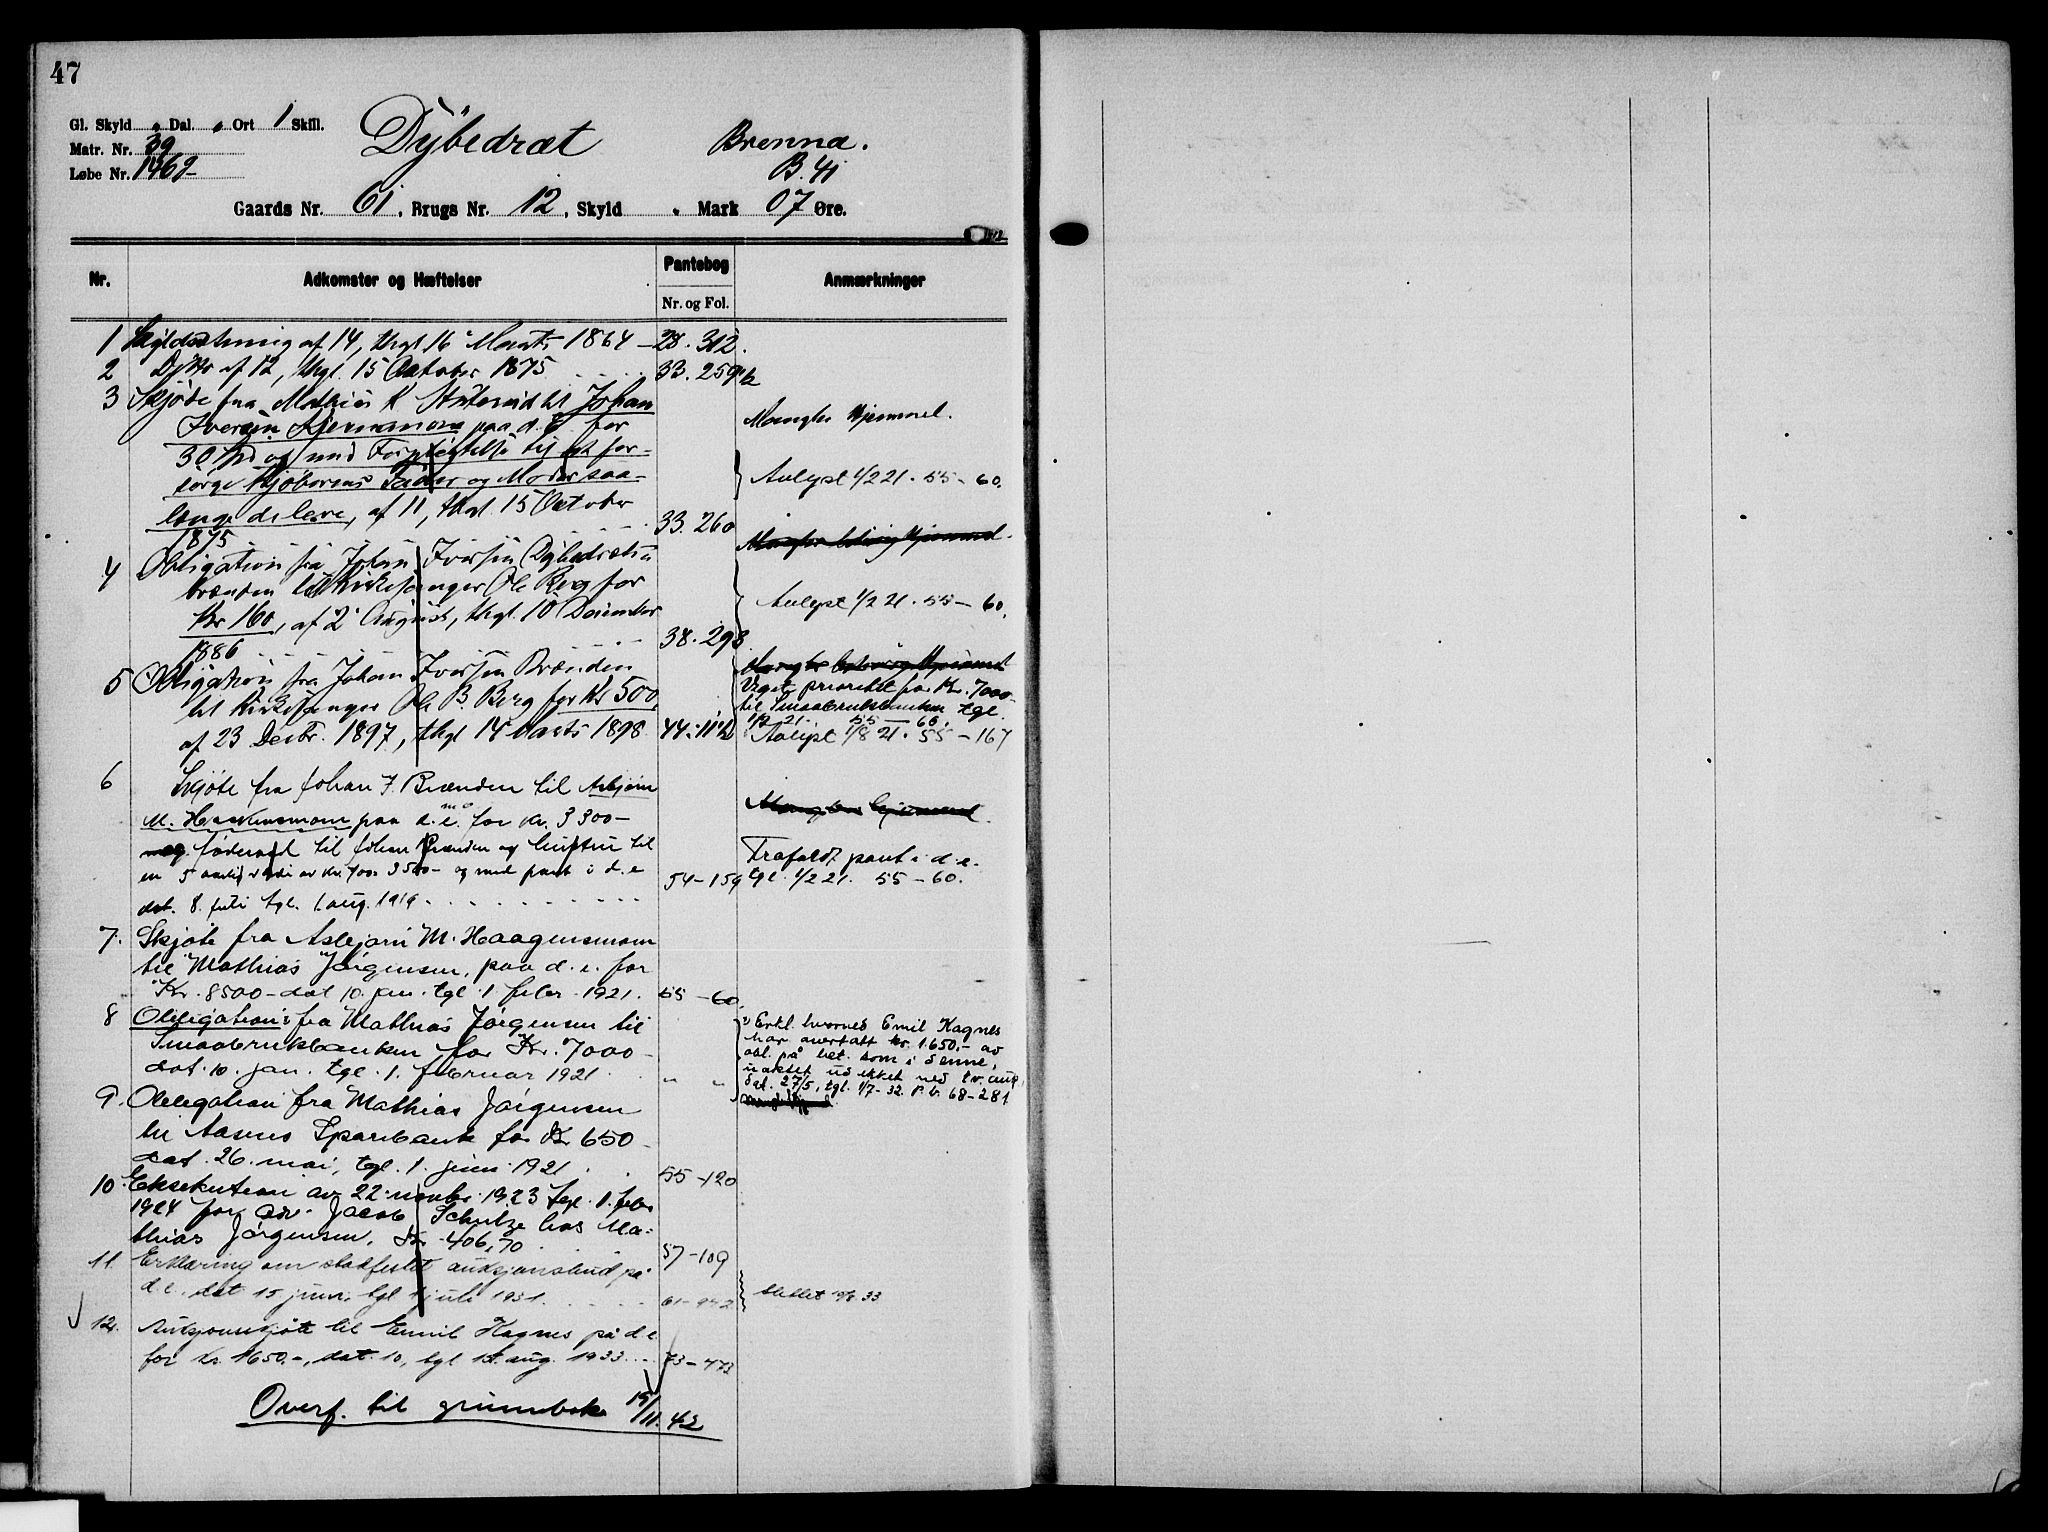 47
Gl. Skyld „ Dal. „ Ort 1 Skill.
Matr. Nr. 39
Løbe Nr. 146
Dybedræt Brenna.
B. 41
Gaards Nr. 61, Brugs Nr. 12, Skyld „ Mark 07 Øre.
Nr. Adkomster og Hæftelser Pantebog Anmærkninger
Nr. og Fol.
1 Skyldsætning af 14, thgl. 16 Marts 1864 28. 312.
2 Ditto af 12, thgl. 15 Oktober 1875 33. 259
3 Skjøde fra Mathias K til Johan
Iversen paa d. E. for
30 Spd og med Forpligtelse til at for-
sørge Kjøberens Fader og Moder saa-
længe de leve, af 11, thgl. 15 Oktober
1875 33. 260
Mangler Hjemmel.
Avlyst 1/2 21. 55 - 60.
4 Obligation fra Johan Iversen Dybedræt
brænden til Kirkesanger Ole Berg for
Kr 160, af 2 August, thgl. 10 December
1886 38. 298
Avlyst 1/2 21. 55 - 60.
5 Obligation fra Johan Iversen Brænden
til Kirkesanger Ole B. Berg for Kr 500,
af 23 Decbr. 1897, thgl 14 Marts 1898 44. 11
Veget prioritet for Kr. 7000
til Smaabrukbanken tgl.
1/2 21. 55 - 60.
Avlyst 1/8 21. 55 - 167
6 Skjøte fra Johan I. Brænden til Asbjørn
M. paa d. e. for kr. 3300-
føderaad til Johan Brænden og hustru til
en 5 aarlig værdi av kr. 700 3500- og med pant i d. e
dat. 8. juli tgl. 1. aug. 1919 54-159
Frafaldt pant i d. e.
tgl. 1/2 21. 55 - 60.
7. Skjøte fra M. Haagensmoen
til Mathias Jørgensen, paa d. e. for
Kr. 8500 - dat 10. jan. tgl. 1. febr. 1921. 55 - 60.
8 Obligation fra Mathias Jørgensen til
Smaabrukbanken for Kr. 7000 -
dat. 10. jan. tgl. 1. februar 1921 " "
Erkl. hvornes Emil Hagnes
har overtatt kr. 1.650,- av
obl. på bet. som i denne,
dat. 27/5, tgl. 1/7-32. P. b. 68-281
9. Obligation fra Mathias Jørgensen
til Aasnes Sparebank for Kr 650 -
dat. 26. mai, tgl. 1. juni 1921 55 - 120
10. Eksekution av 22. novbr. 1923 tgl. 1. febr
1924 for adv. Jacob Schulze hos Ma-
thias Jørgensen, Kr. 406,70 57 - 109
11. Erklæring om stadfestet auksjonsbud på
d. e. dat 15 juni, tgl 1 juli 1931. 61 - 942
12. Auksjonsskjøte til Emil Hagnes på d. e.
for kr. 1650.-, dat. 10, tgl 15. aug. 1933 73 - 473
Overf. til grunnbok 15/11. 42